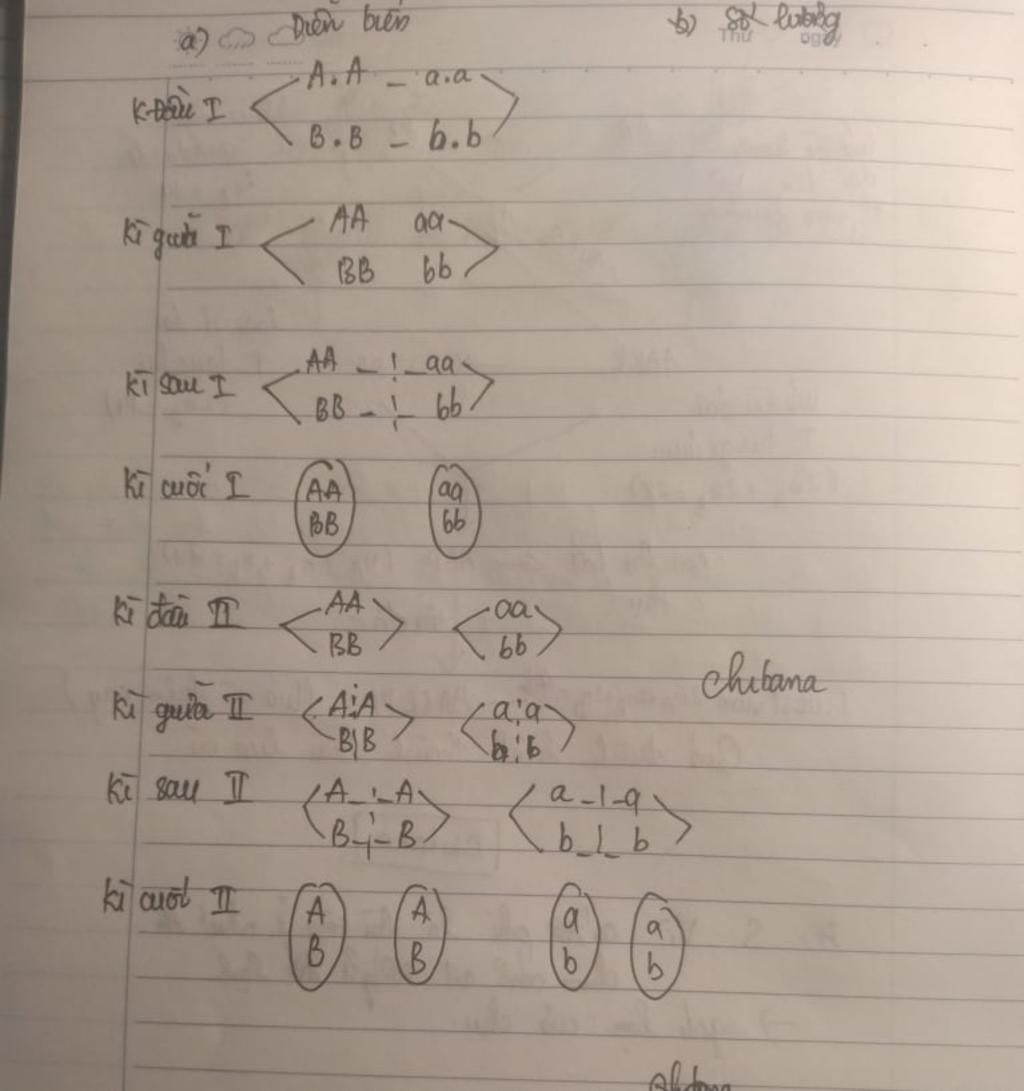 a) Diễn biến b) Số lượng
Thứ ngày
K đầu I A.A - a.a
B.B - b.b
Kì giữa I AA aa
BB bb
Kì sau I AA - ¦ - aa
BB - ¦ - bb
Kì cuối I AA aa
BB bb
Kì đầu II AA aa
BB bb
Chibana
Kì giữa II A¦A a¦a
B|B b¦b
Kì sau II A - ¦ - A a - | - a
B - ¦ - B b - | - b
Kì cuối II A A a a
B B b b